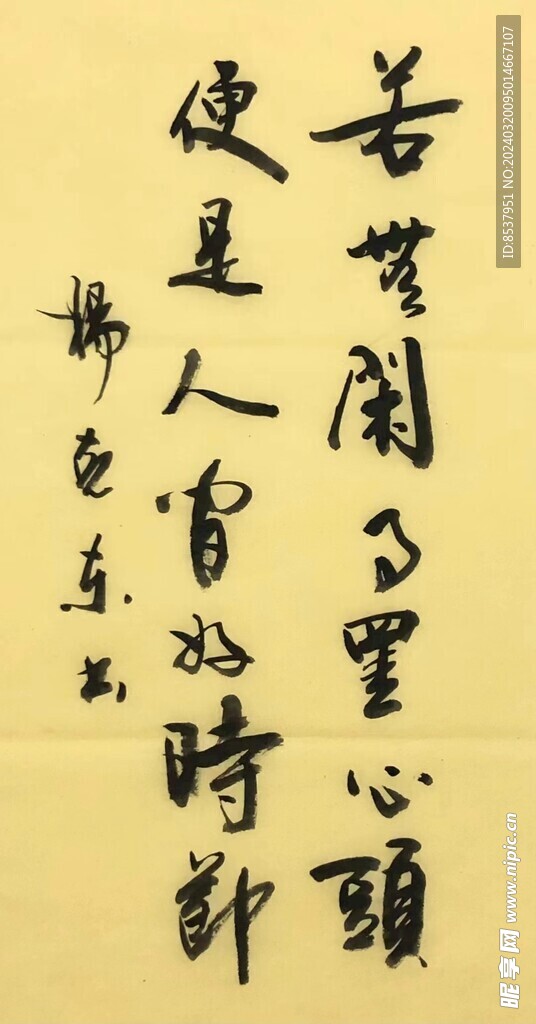 若無閑事罣心頭
便是人間好時節
楊克东书
ID:8537951 NO:20240320095014667107
昵享网 www.nipic.cn